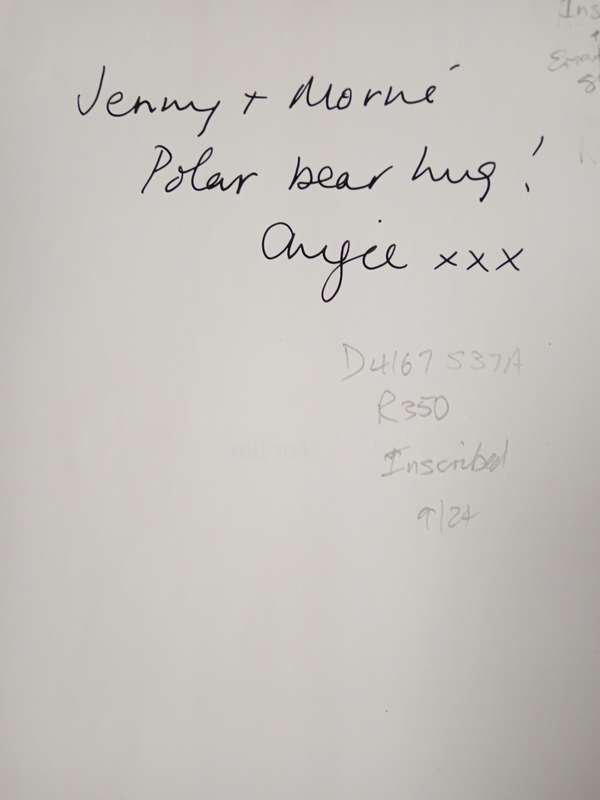 Jenny + Morné
Polar bear hug!
Angie xxx
D4167 S37A
R350
Inscribed
9/24
Ins